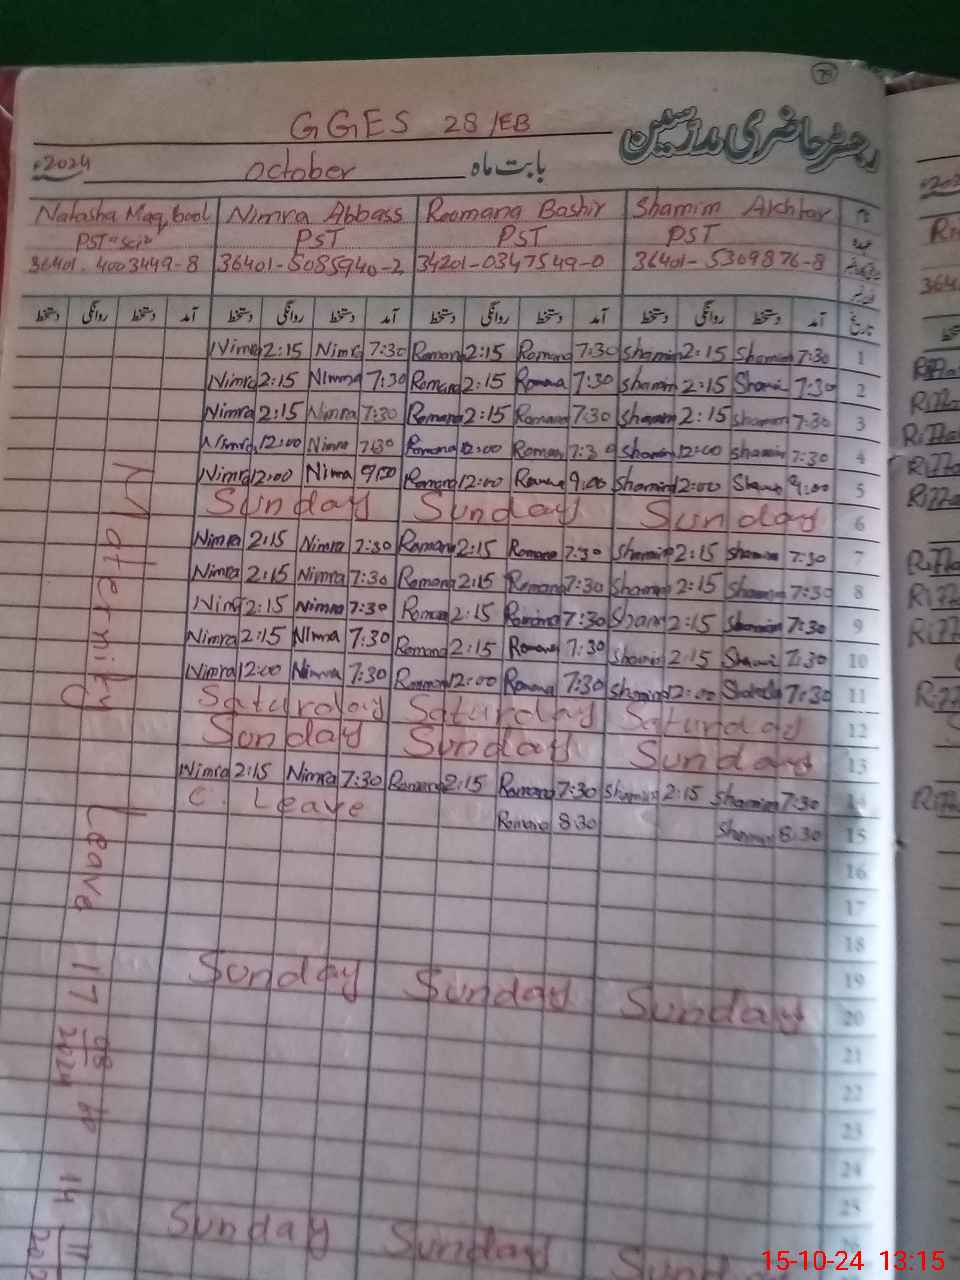 79
GGES 28/EB
رجسٹر حاضری مدرسین
2024ء October بابت ماہ
Natasha Maqbool Nimra Abbass Roomana Bashir Shamim Akhtar نام
PST"Sci" PST PST PST عہدہ
36401-4003449-8 36401-5085940-2 34201-0347549-0 36401-5309876-8
دستخط روانگی دستخط آمد دستخط روانگی دستخط آمد دستخط روانگی دستخط آمد دستخط روانگی دستخط آمد تاریخ
Nimra 2:15 Nimra 7:30 Romana 2:15 Romana 7:30 Shamim 2:15 Shamim 7:30 1
Nimra 2:15 Nimra 7:30 Romana 2:15 Romana 7:30 Shamim 2:15 Shamim 7:30 2
Nimra 2:15 Nimra 7:30 Romana 2:15 Romana 7:30 Shamim 2:15 Shamim 7:30 3
Nimra 12:00 Nimra 7:30 Romana 12:00 Romana 7:30 Shamim 12:00 Shamim 7:30 4
Nimra 12:00 Nimra 9:00 Romana 12:00 Romana 9:00 Shamim 12:00 Shamim 9:00 5
Sunday Sunday Sunday 6
Nimra 2:15 Nimra 7:30 Romana 2:15 Romana 7:30 Shamim 2:15 Shamim 7:30 7
Nimra 2:15 Nimra 7:30 Romana 2:15 Romana 7:30 Shamim 2:15 Shamim 7:30 8
Nimra 2:15 Nimra 7:30 Romana 2:15 Romana 7:30 Shamim 2:15 Shamim 7:30 9
Nimra 2:15 Nimra 7:30 Romana 2:15 Romana 7:30 Shamim 2:15 Shamim 7:30 10
Nimra 12:00 Nimra 7:30 Romana 12:00 Romana 7:30 Shamim 12:00 Shamim 7:30 11
Saturday Saturday Saturday 12
Sunday Sunday Sunday 13
Nimra 2:15 Nimra 7:30 Romana 2:15 Romana 7:30 Shamim 2:15 Shamim 7:30 14
C. Leave Romana 8:30 Shamim 8:30 15
16
17
18
19
Sunday Sunday Sunday 20
21
22
23
24
25
Sunday Sunday Sunday 26
Maternity Leave 17 08 2024 to 14 11
15-10-24 13:15